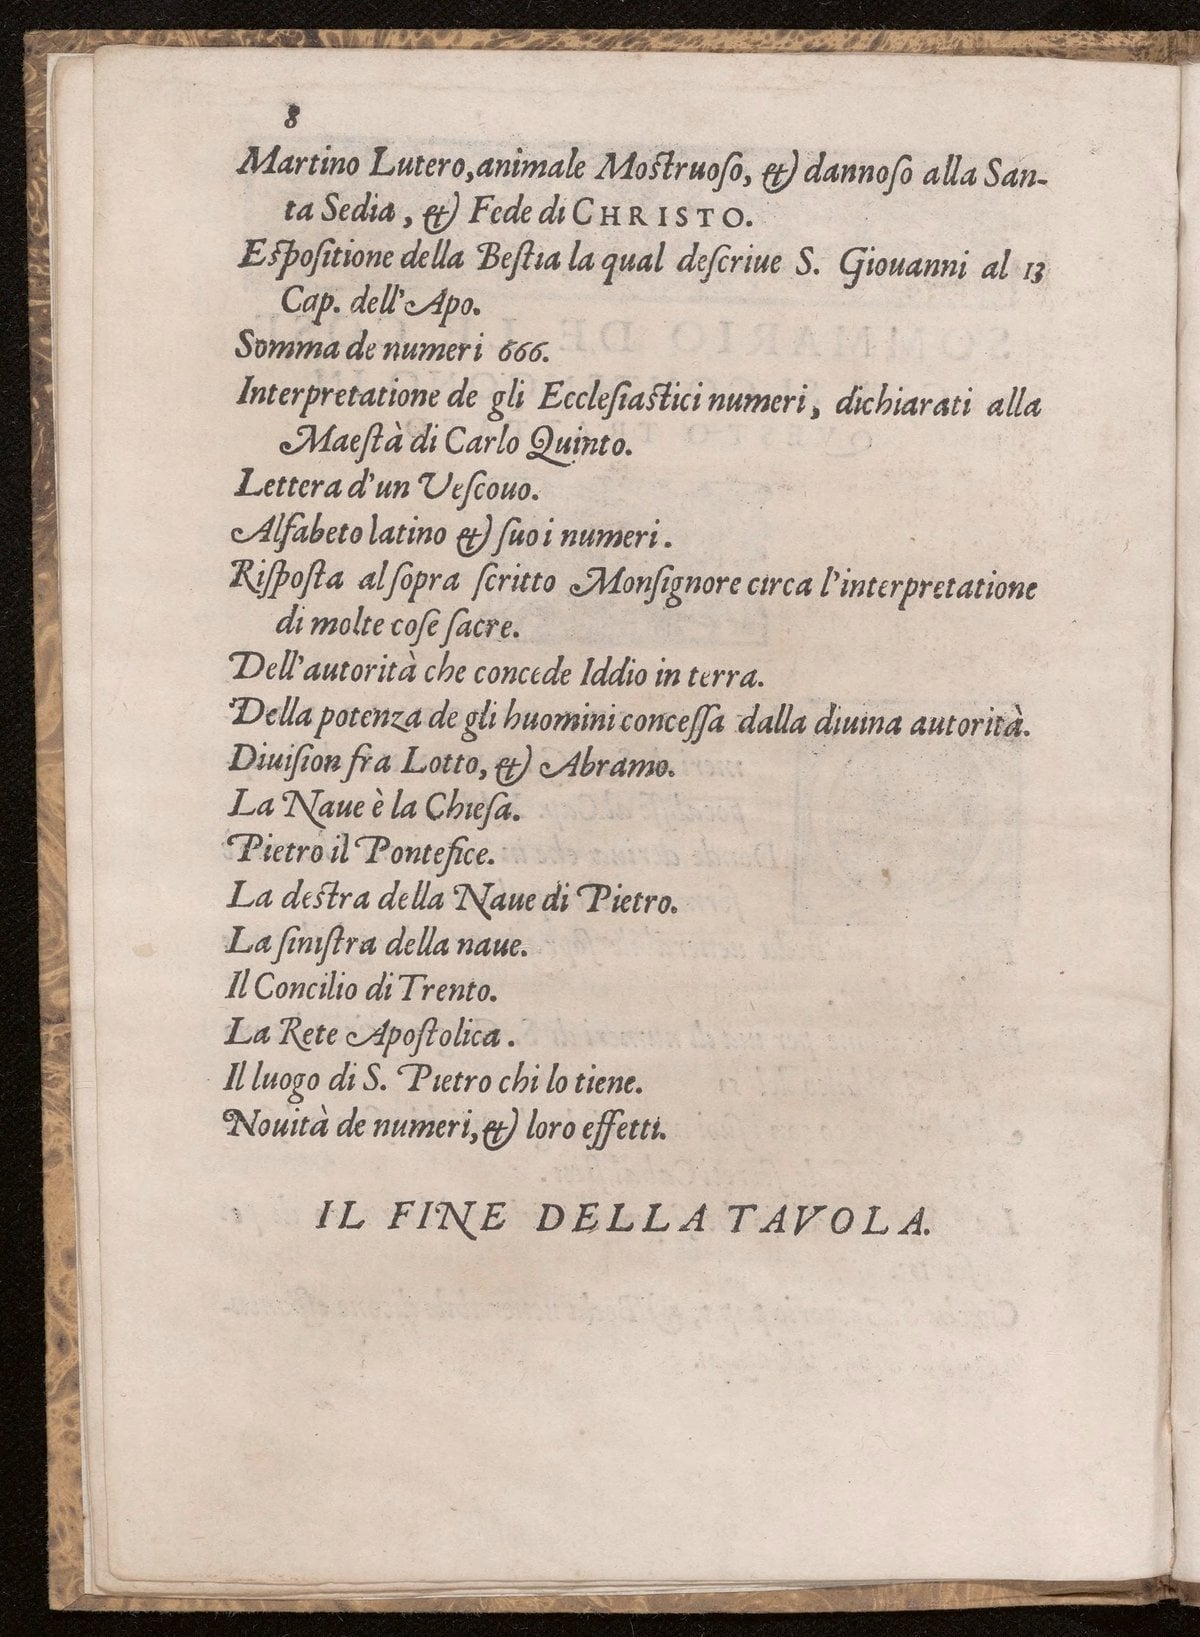 8
Martino Lutero, animale Mostruoso, & dannoso alla San-
ta Sedia, & Fede di CHRISTO.
Espositione della Bestia la qual descriue S. Giouanni al 13
Cap. dell'Apo.
Somma de numeri 666.
Interpretatione de gli Ecclesiastici numeri, dichiarati alla
Maestà di Carlo Quinto.
Lettera d'un Vescouo.
Alfabeto latino & suoi numeri.
Risposta al sopra scritto Monsignore circa l'interpretatione
di molte cose sacre.
Dell'autorità che concede Iddio in terra.
Della potenza de gli huomini concessa dalla diuina autorità.
Diuision fra Lotto, & Abramo.
La Naue è la Chiesa.
Pietro il Pontefice.
La destra della Naue di Pietro.
La sinistra della naue.
Il Concilio di Trento.
La Rete Apostolica.
Il luogo di S. Pietro chi lo tiene.
Nouità de numeri, & loro effetti.
IL FINE DELLA TAVOLA.